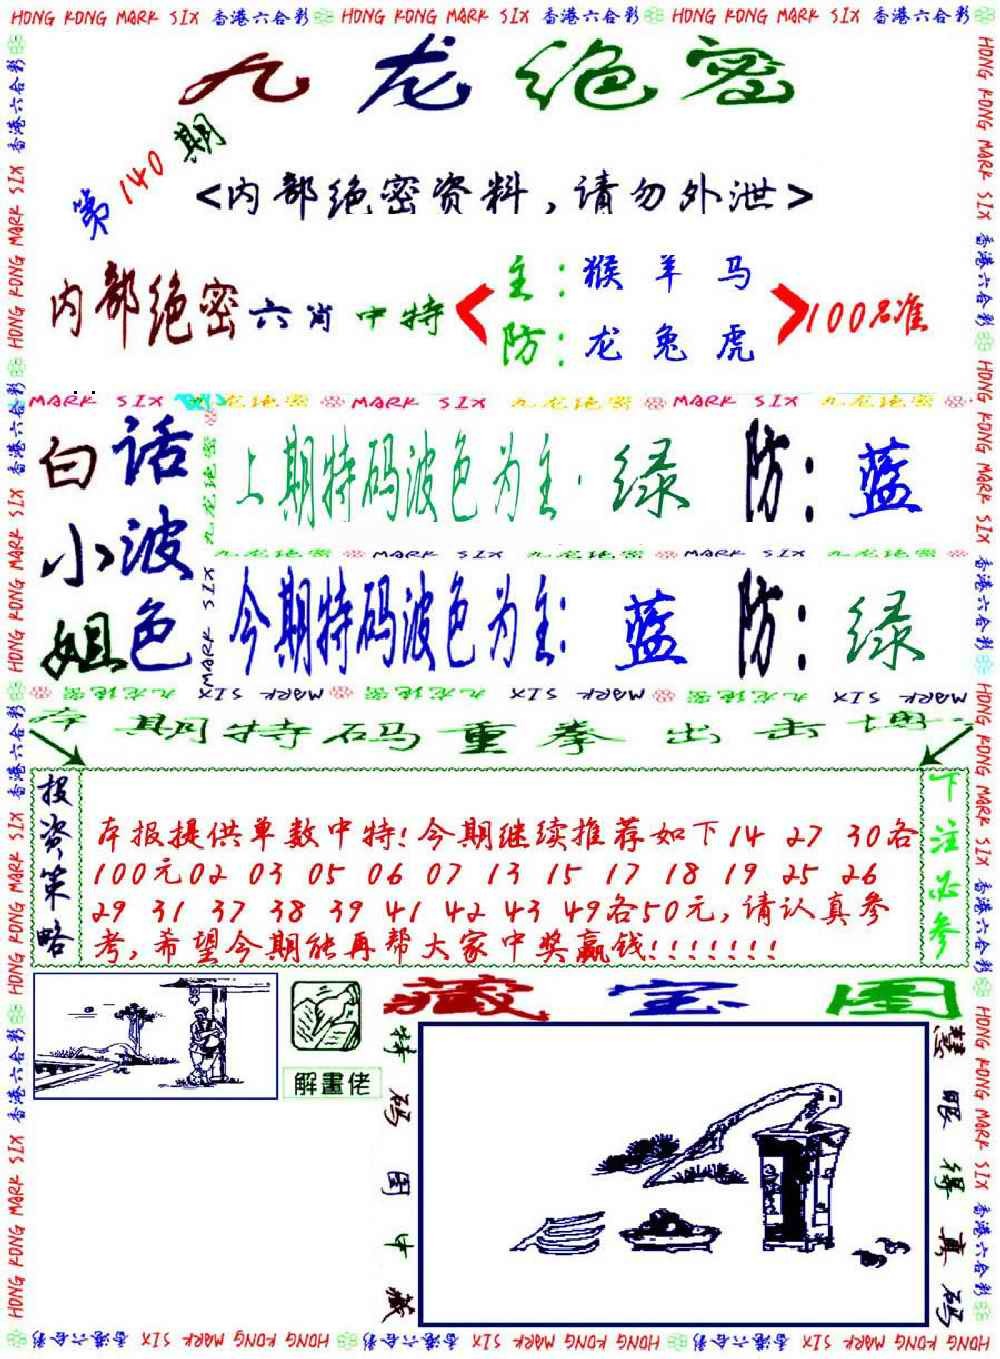 HONG KONG MARK SIX 香港六合彩 HONG KONG MARK SIX 香港六合彩 HONG KONG MARK SIX 香港六合彩
九龙绝密
第140期
<内部绝密资料,请勿外泄>
内部绝密六肖中特
主:猴羊马
防:龙兔虎
100%准
MARK SIX 九龙绝密 MARK SIX 九龙绝密 MARK SIX 九龙绝密
白小姐
话波色
上期特码波色为主·绿 防:蓝
九龙绝密 MARK SIX 九龙绝密 MARK SIX 九龙绝密
今期特码波色为主:蓝 防:绿
九龙绝密 MARK SIX 九龙绝密 MARK SIX 九龙绝密 MARK SIX
本期特码重拳出击
投资策略
本报提供单数中特!今期继续推荐如下14 27 30各
100元02 03 05 06 07 13 15 17 18 19 25 26
29 31 37 38 39 41 42 43 49各50元,请认真参
考,希望今期能再帮大家中奖赢钱!!!!!!!
下注必参
解畫佬
藏宝图
特码图中藏
慧眼得真码
HONG KONG MARK SIX 香港六合彩 HONG KONG MARK SIX 香港六合彩 HONG KONG MARK SIX 香港六合彩